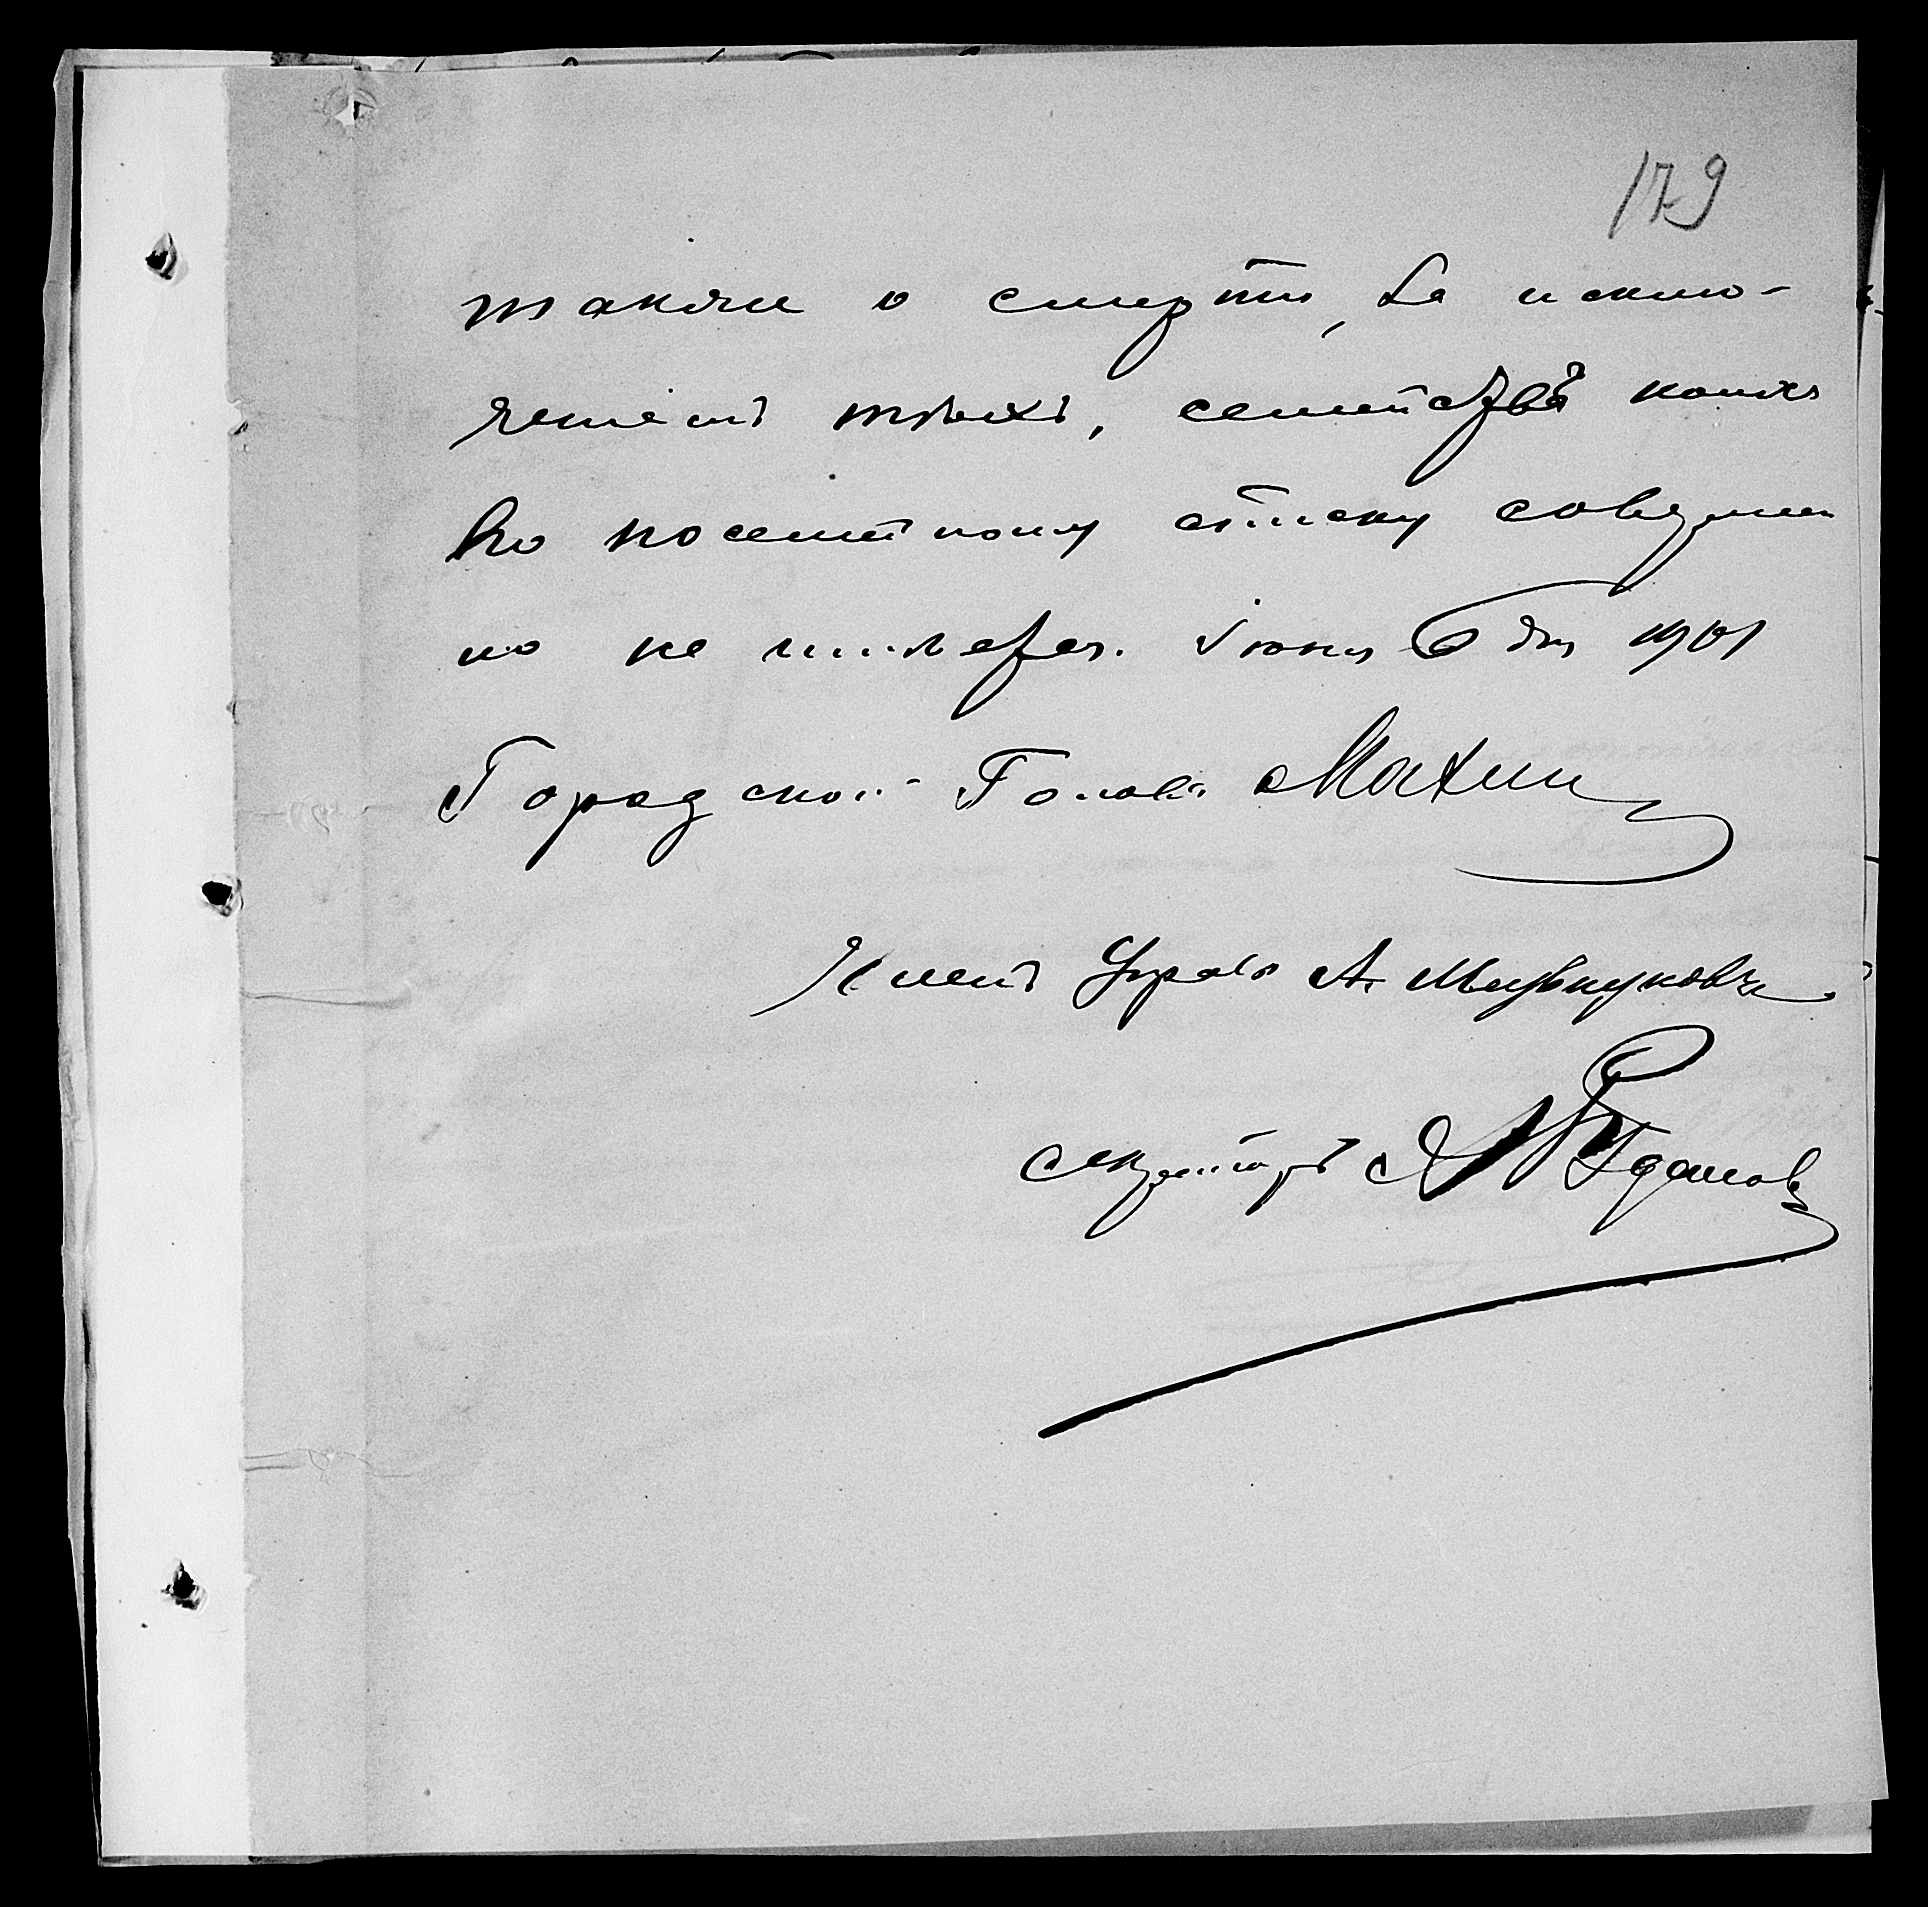 179
такжи о смерти, за исклю-
ченіемъ тѣхъ, семействъ коихъ
по посемейному списку совершен
но не имѣется. Іюня 6 дня 1901
Городской Голова Махин
Членъ Управы А.
Секретарь